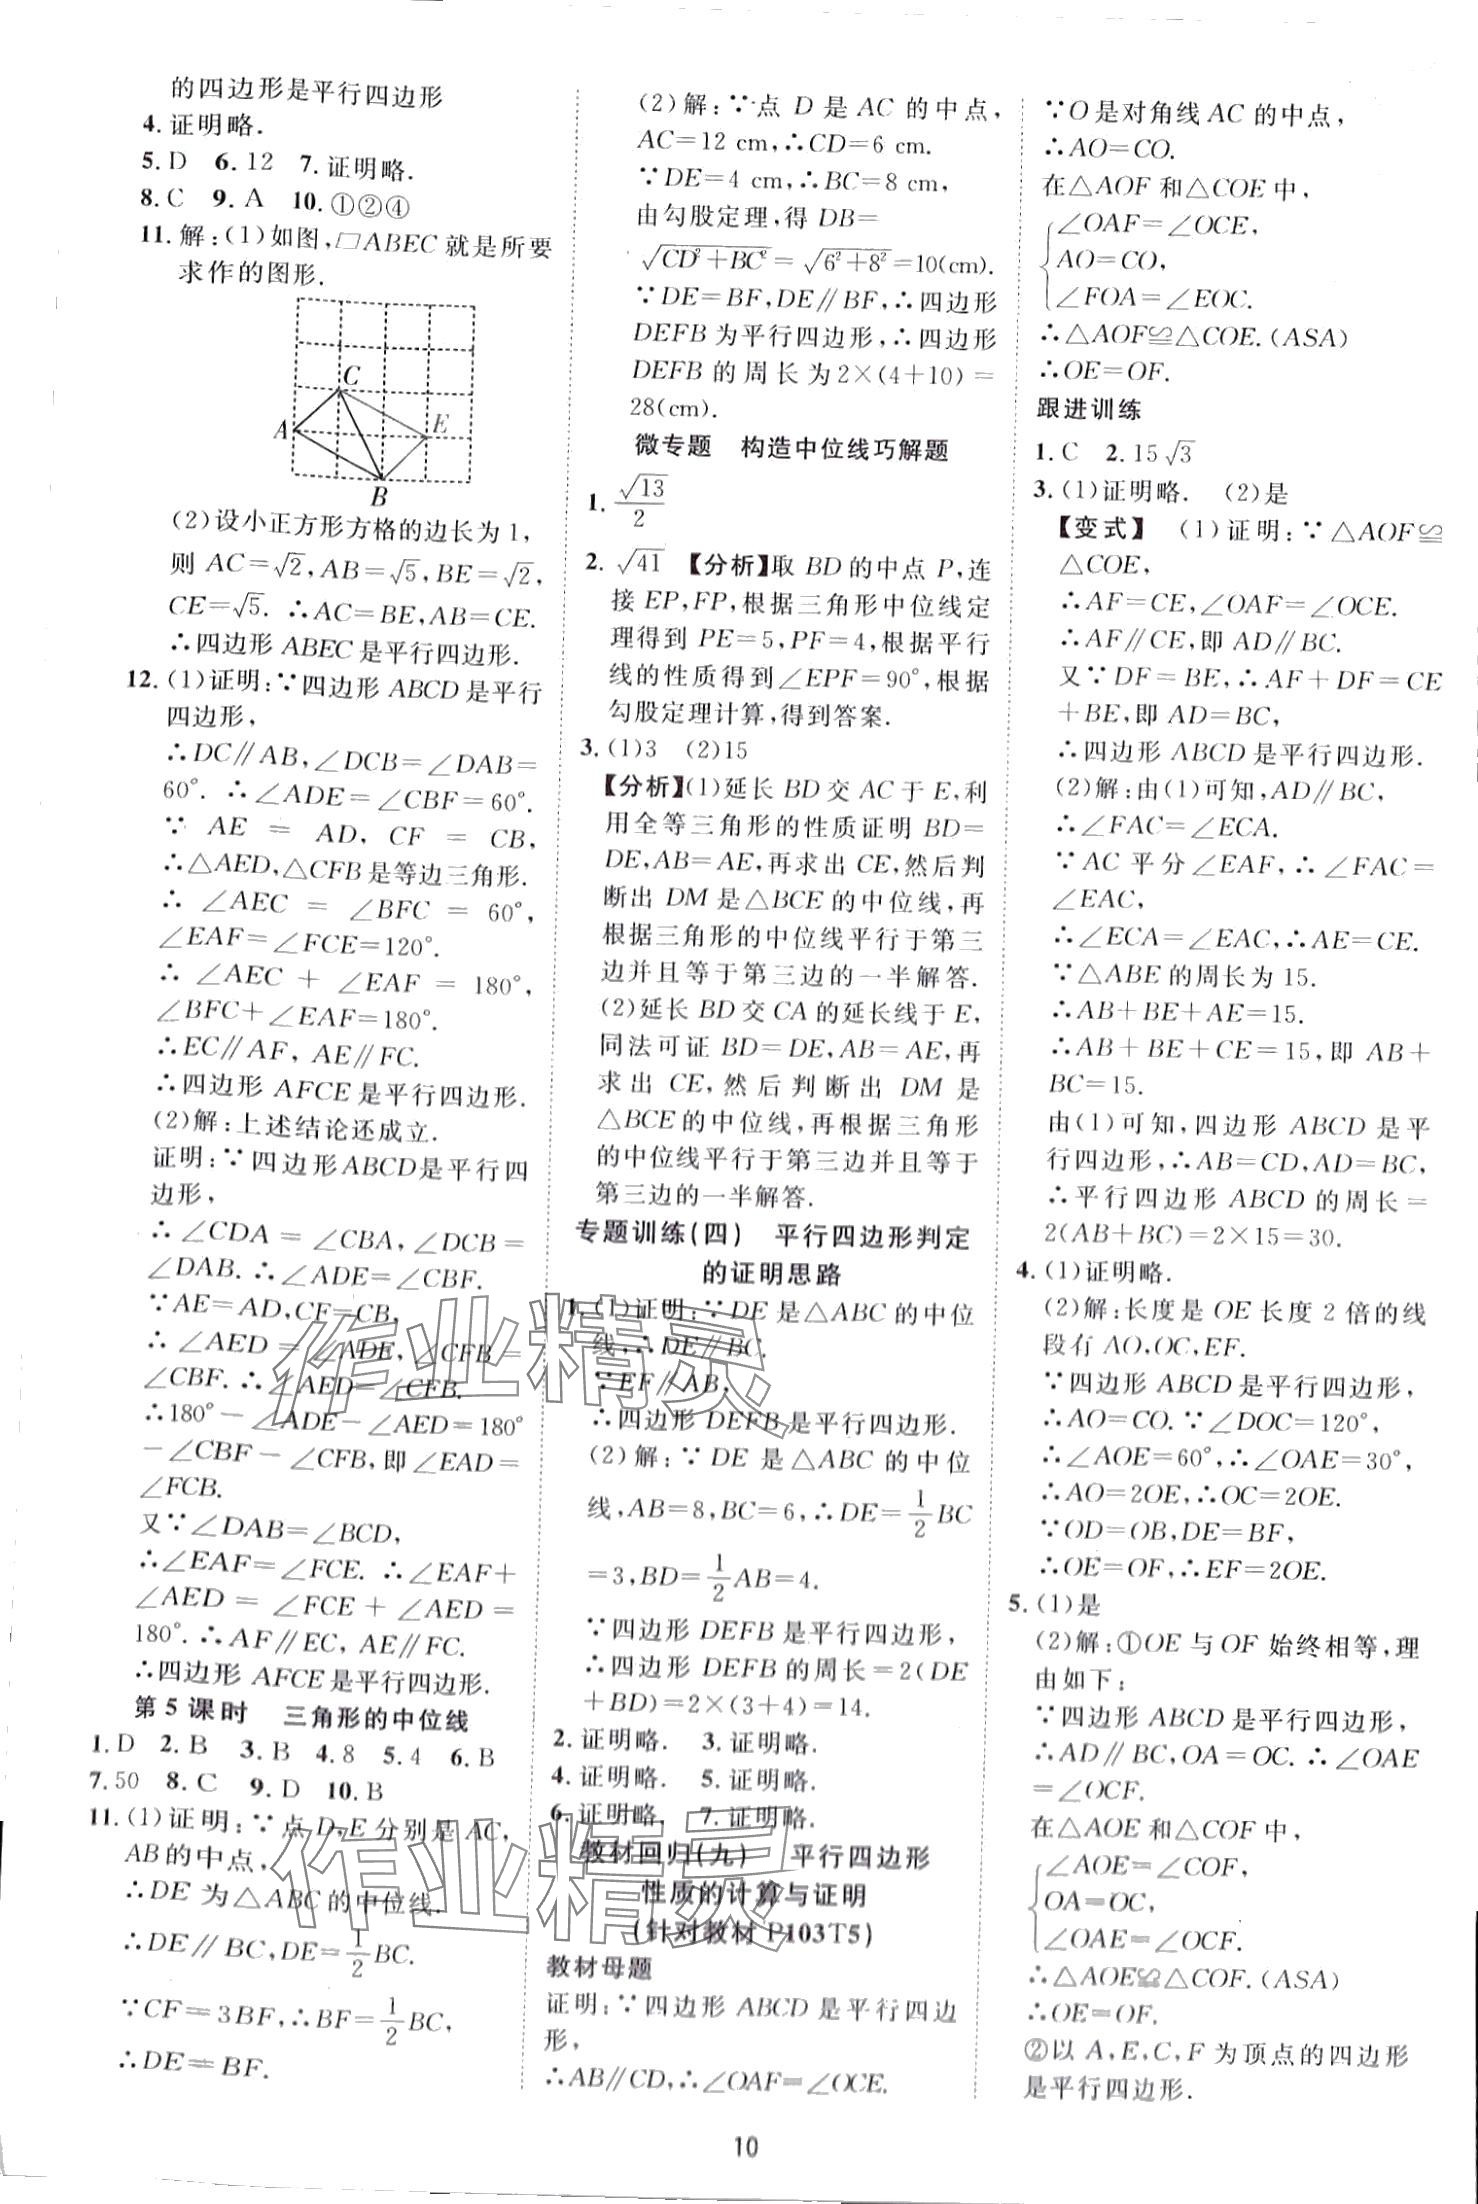 的四边形是平行四边形
4. 证明略.
5. D 6. 12 7. 证明略.
8. C 9. A 10. ①②④
11. 解:(1)如图,▱ABEC 就是所要
求作的图形.
C
A
E
B
(2)设小正方形方格的边长为 1,
则 AC=√2,AB=√5,BE=√2,
CE=√5. ∴AC=BE,AB=CE.
∴四边形 ABEC 是平行四边形.
12. (1)证明:∵四边形 ABCD 是平行
四边形,
∴DC∥AB,∠DCB=∠DAB=
60°. ∴∠ADE=∠CBF=60°.
∵ AE = AD, CF = CB,
∴△AED,△CFB 是等边三角形.
∴ ∠AEC = ∠BFC = 60°,
∠EAF=∠FCE=120°.
∴ ∠AEC + ∠EAF = 180°,
∠BFC+∠EAF=180°.
∴EC∥AF, AE∥FC.
∴四边形 AFCE 是平行四边形.
(2)解:上述结论还成立.
证明:∵四边形ABCD是平行四
边形,
∴ ∠CDA = ∠CBA, ∠DCB =
∠DAB. ∴∠ADE=∠CBF.
∵AE=AD,CF=CB,
∴ ∠AED = ∠ADE, ∠CFB =
∠CBF. ∴∠AED=∠CFB.
∴180°-∠ADE-∠AED=180°
-∠CBF-∠CFB,即∠EAD=
∠FCB.
又∵∠DAB=∠BCD,
∴∠EAF=∠FCE. ∴∠EAF+
∠AED = ∠FCE + ∠AED =
180°. ∴AF∥EC, AE∥FC.
∴四边形 AFCE 是平行四边形.
第 5 课时 三角形的中位线
1. D 2. B 3. B 4. 8 5. 4 6. B
7. 50 8. C 9. D 10. B
11. (1)证明:∵点 D,E 分别是 AC,
AB 的中点,
∴DE 为△ABC 的中位线.
∴DE∥BC,DE=1/2BC.
∵CF=3BF,∴BF=1/2BC,
∴DE=BF.
(2)解:∵点 D 是 AC 的中点,
AC=12 cm,∴CD=6 cm.
∵DE=4 cm,∴BC=8 cm,
由勾股定理,得 DB=
√(CD²+BC²)=√(6²+8²)=10(cm).
∵DE=BF,DE∥BF,∴四边形
DEFB 为平行四边形,∴四边形
DEFB 的周长为2×(4+10)=
28(cm).
微专题 构造中位线巧解题
1. √13/2
2. √41 【分析】取 BD 的中点 P,连
接 EP,FP,根据三角形中位线定
理得到 PE=5,PF=4,根据平行
线的性质得到∠EPF=90°,根据
勾股定理计算,得到答案.
3. (1)3 (2)15
【分析】(1)延长 BD 交 AC 于 E,利
用全等三角形的性质证明 BD=
DE,AB=AE,再求出 CE,然后判
断出 DM 是△BCE 的中位线,再
根据三角形的中位线平行于第三
边并且等于第三边的一半解答.
(2)延长 BD 交 CA 的延长线于 E,
同法可证 BD=DE,AB=AE,再
求出 CE,然后判断出 DM 是
△BCE 的中位线,再根据三角形
的中位线平行于第三边并且等于
第三边的一半解答.
专题训练(四) 平行四边形判定
的证明思路
1. (1)证明:∵DE 是△ABC 的中位
线,∴DE∥BC.
∵EF∥AB,
∴四边形 DEFB 是平行四边形.
(2)解:∵DE 是△ABC 的中位
线,AB=8,BC=6,∴DE=1/2BC
=3,BD=1/2AB=4.
∵四边形 DEFB 是平行四边形,
∴四边形 DEFB 的周长=2(DE
+BD)=2×(3+4)=14.
2. 证明略. 3. 证明略.
4. 证明略. 5. 证明略.
6. 证明略. 7. 证明略.
教材回归(九) 平行四边形
性质的计算与证明
(针对教材 P103T5)
教材母题
证明:∵四边形 ABCD 是平行四边
形,
∴AB∥CD,∴∠OAF=∠OCE.
∵O 是对角线 AC 的中点,
∴AO=CO.
在△AOF 和△COE 中,
∠OAF=∠OCE,
AO=CO,
∠FOA=∠EOC.
∴△AOF≌△COE.(ASA)
∴OE=OF.
跟进训练
1. C 2. 15√3
3. (1)证明略. (2)是
【变式】 (1)证明:∵△AOF≌
△COE,
∴AF=CE,∠OAF=∠OCE.
∴AF∥CE,即 AD∥BC.
又∵DF=BE,∴AF+DF=CE
+BE,即 AD=BC,
∴四边形 ABCD 是平行四边形.
(2)解:由(1)可知,AD∥BC,
∴∠FAC=∠ECA.
∵AC 平分∠EAF,∴∠FAC=
∠EAC,
∴∠ECA=∠EAC,∴AE=CE.
∵△ABE 的周长为 15.
∴AB+BE+AE=15.
∴AB+BE+CE=15,即 AB+
BC=15.
由(1)可知,四边形 ABCD 是平
行四边形,∴AB=CD,AD=BC,
∴平行四边形 ABCD 的周长=
2(AB+BC)=2×15=30.
4. (1)证明略.
(2)解:长度是 OE 长度 2 倍的线
段有 AO,OC,EF.
∵四边形 ABCD 是平行四边形,
∴AO=CO. ∵∠DOC=120°,
∴∠AOE=60°,∴∠OAE=30°,
∴AO=2OE,∴OC=2OE.
∵OD=OB,DE=BF,
∴OE=OF,∴EF=2OE.
5. (1)是
(2)解:①OE 与 OF 始终相等,理
由如下:
∵四边形 ABCD 是平行四边形,
∴AD∥BC,OA=OC. ∴∠OAE
=∠OCF.
在△AOE 和△COF 中,
∠AOE=∠COF,
OA=OC,
∠OAE=∠OCF.
∴△AOE≌△COF.(ASA)
∴OE=OF.
②以 A,E,C,F 为顶点的四边形
是平行四边形.
作业精灵
作业精灵
10